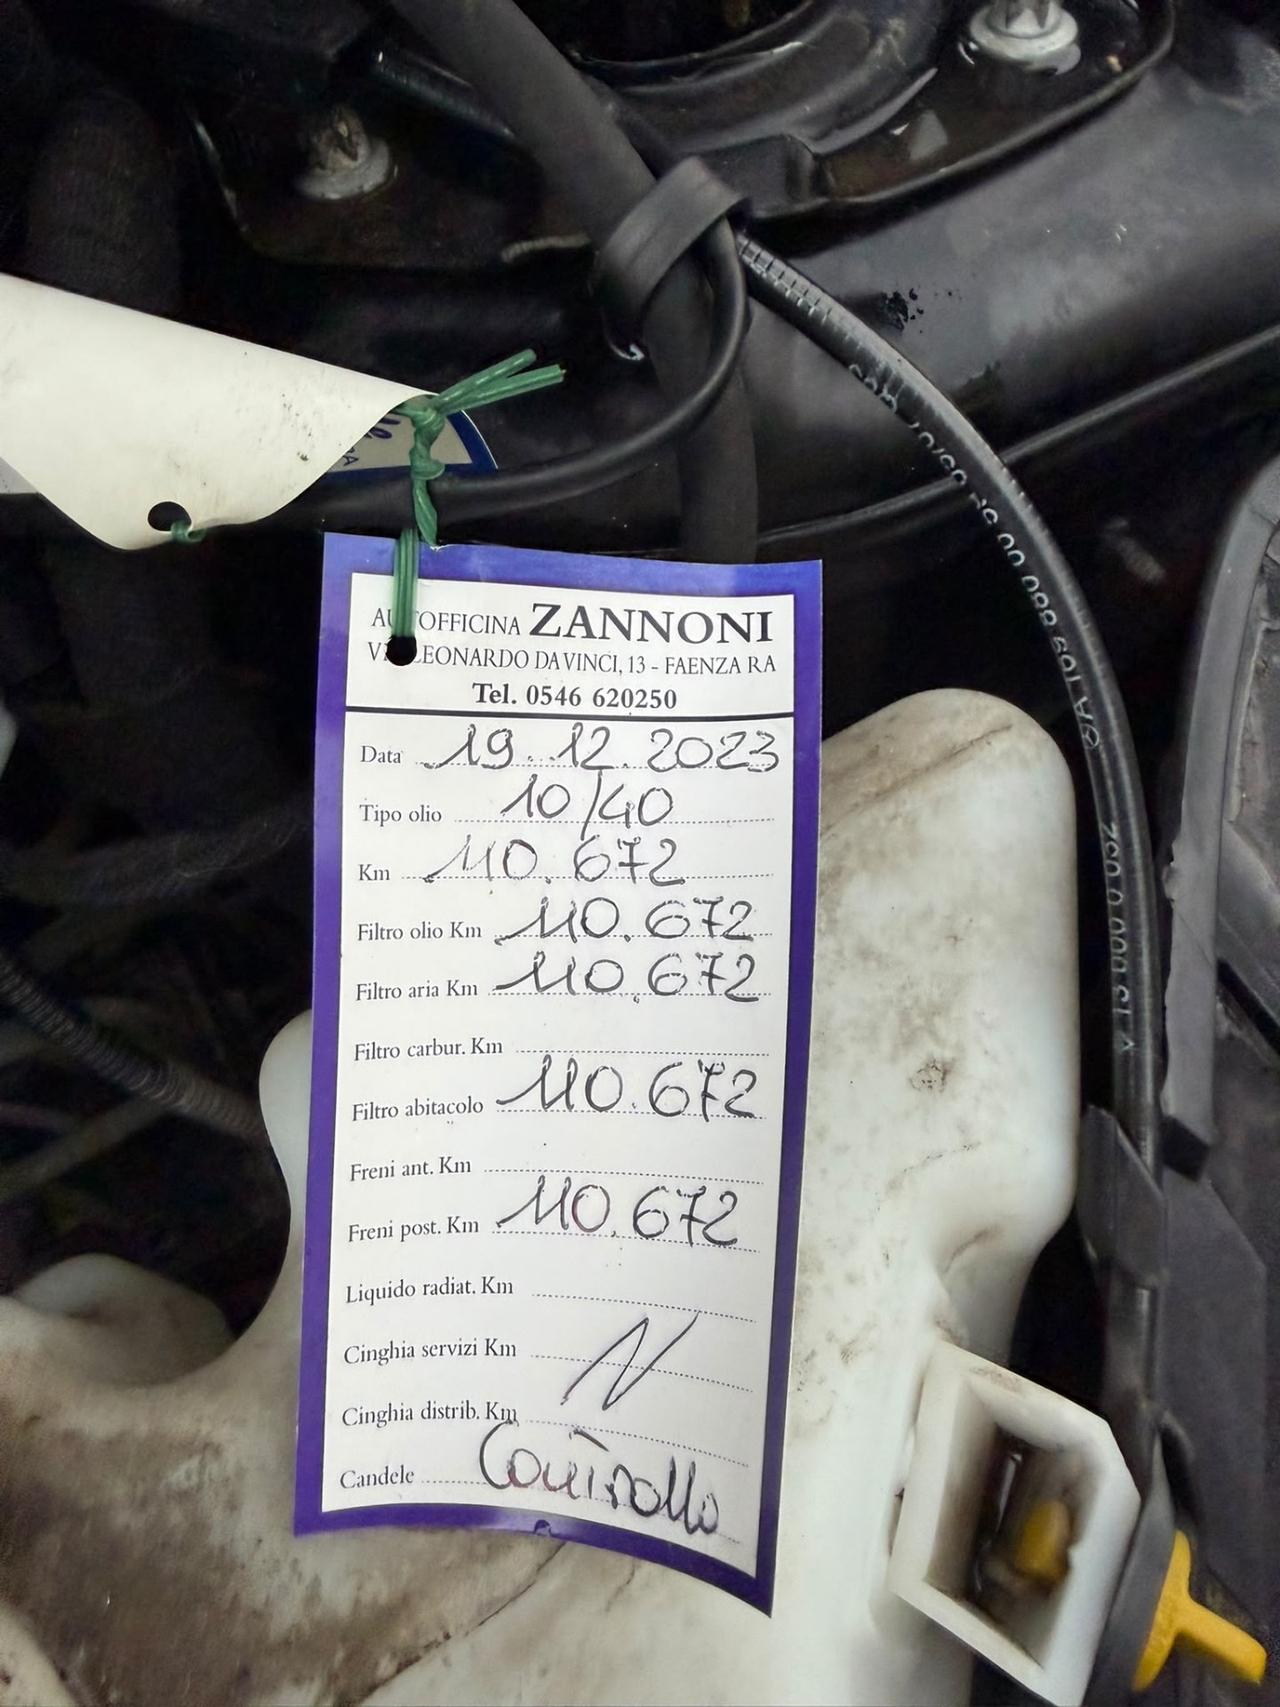 AUTOFFICINA ZANNONI
VIA LEONARDO DA VINCI, 13 - FAENZA RA
Tel. 0546 620250
Data 19.12.2023
Tipo olio 10/40
Km 110.672
Filtro olio Km 110.672
Filtro aria Km 110.672
Filtro carbur. Km
Filtro abitacolo 110.672
Freni ant. Km
Freni post. Km 110.672
Liquido radiat. Km
Cinghia servizi Km N
Cinghia distrib. Km
Candele Controllo